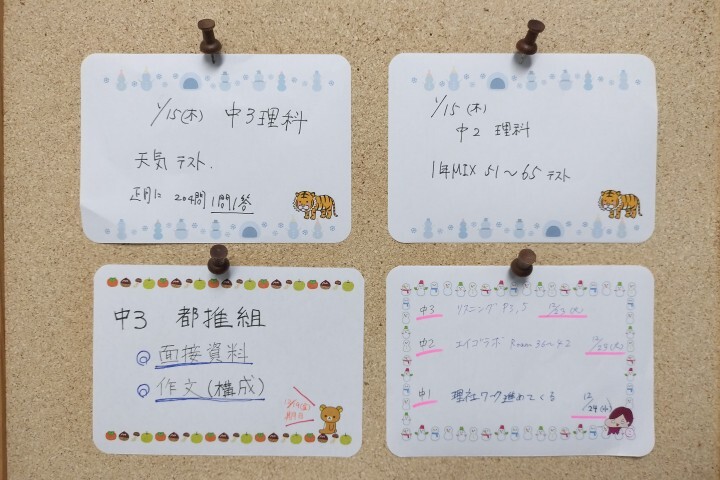 1/15(木) 中3理科
天気 テスト.
正月に 204問 1問1答
1/15(木)
中2 理科
1年MIX 51〜65 テスト
中3 都推組
◎ 面接資料
◎ 作文(構成)
12/19(金)
中3 リスニング P3,5
中2 エイゴラボ Room 36〜42 12/24(水)
中1 理社ワーク進めてくる 12/24(水)